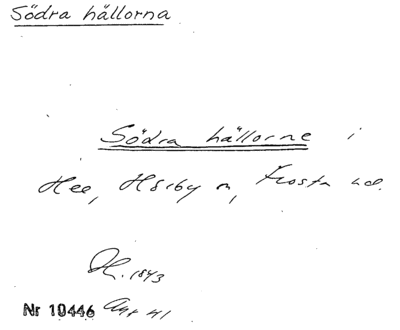 Södra hällorna
Södra hällorne i
Hee, Hörby sn, Frosta hd.
H. 1843
Nr 10446 Akt 41